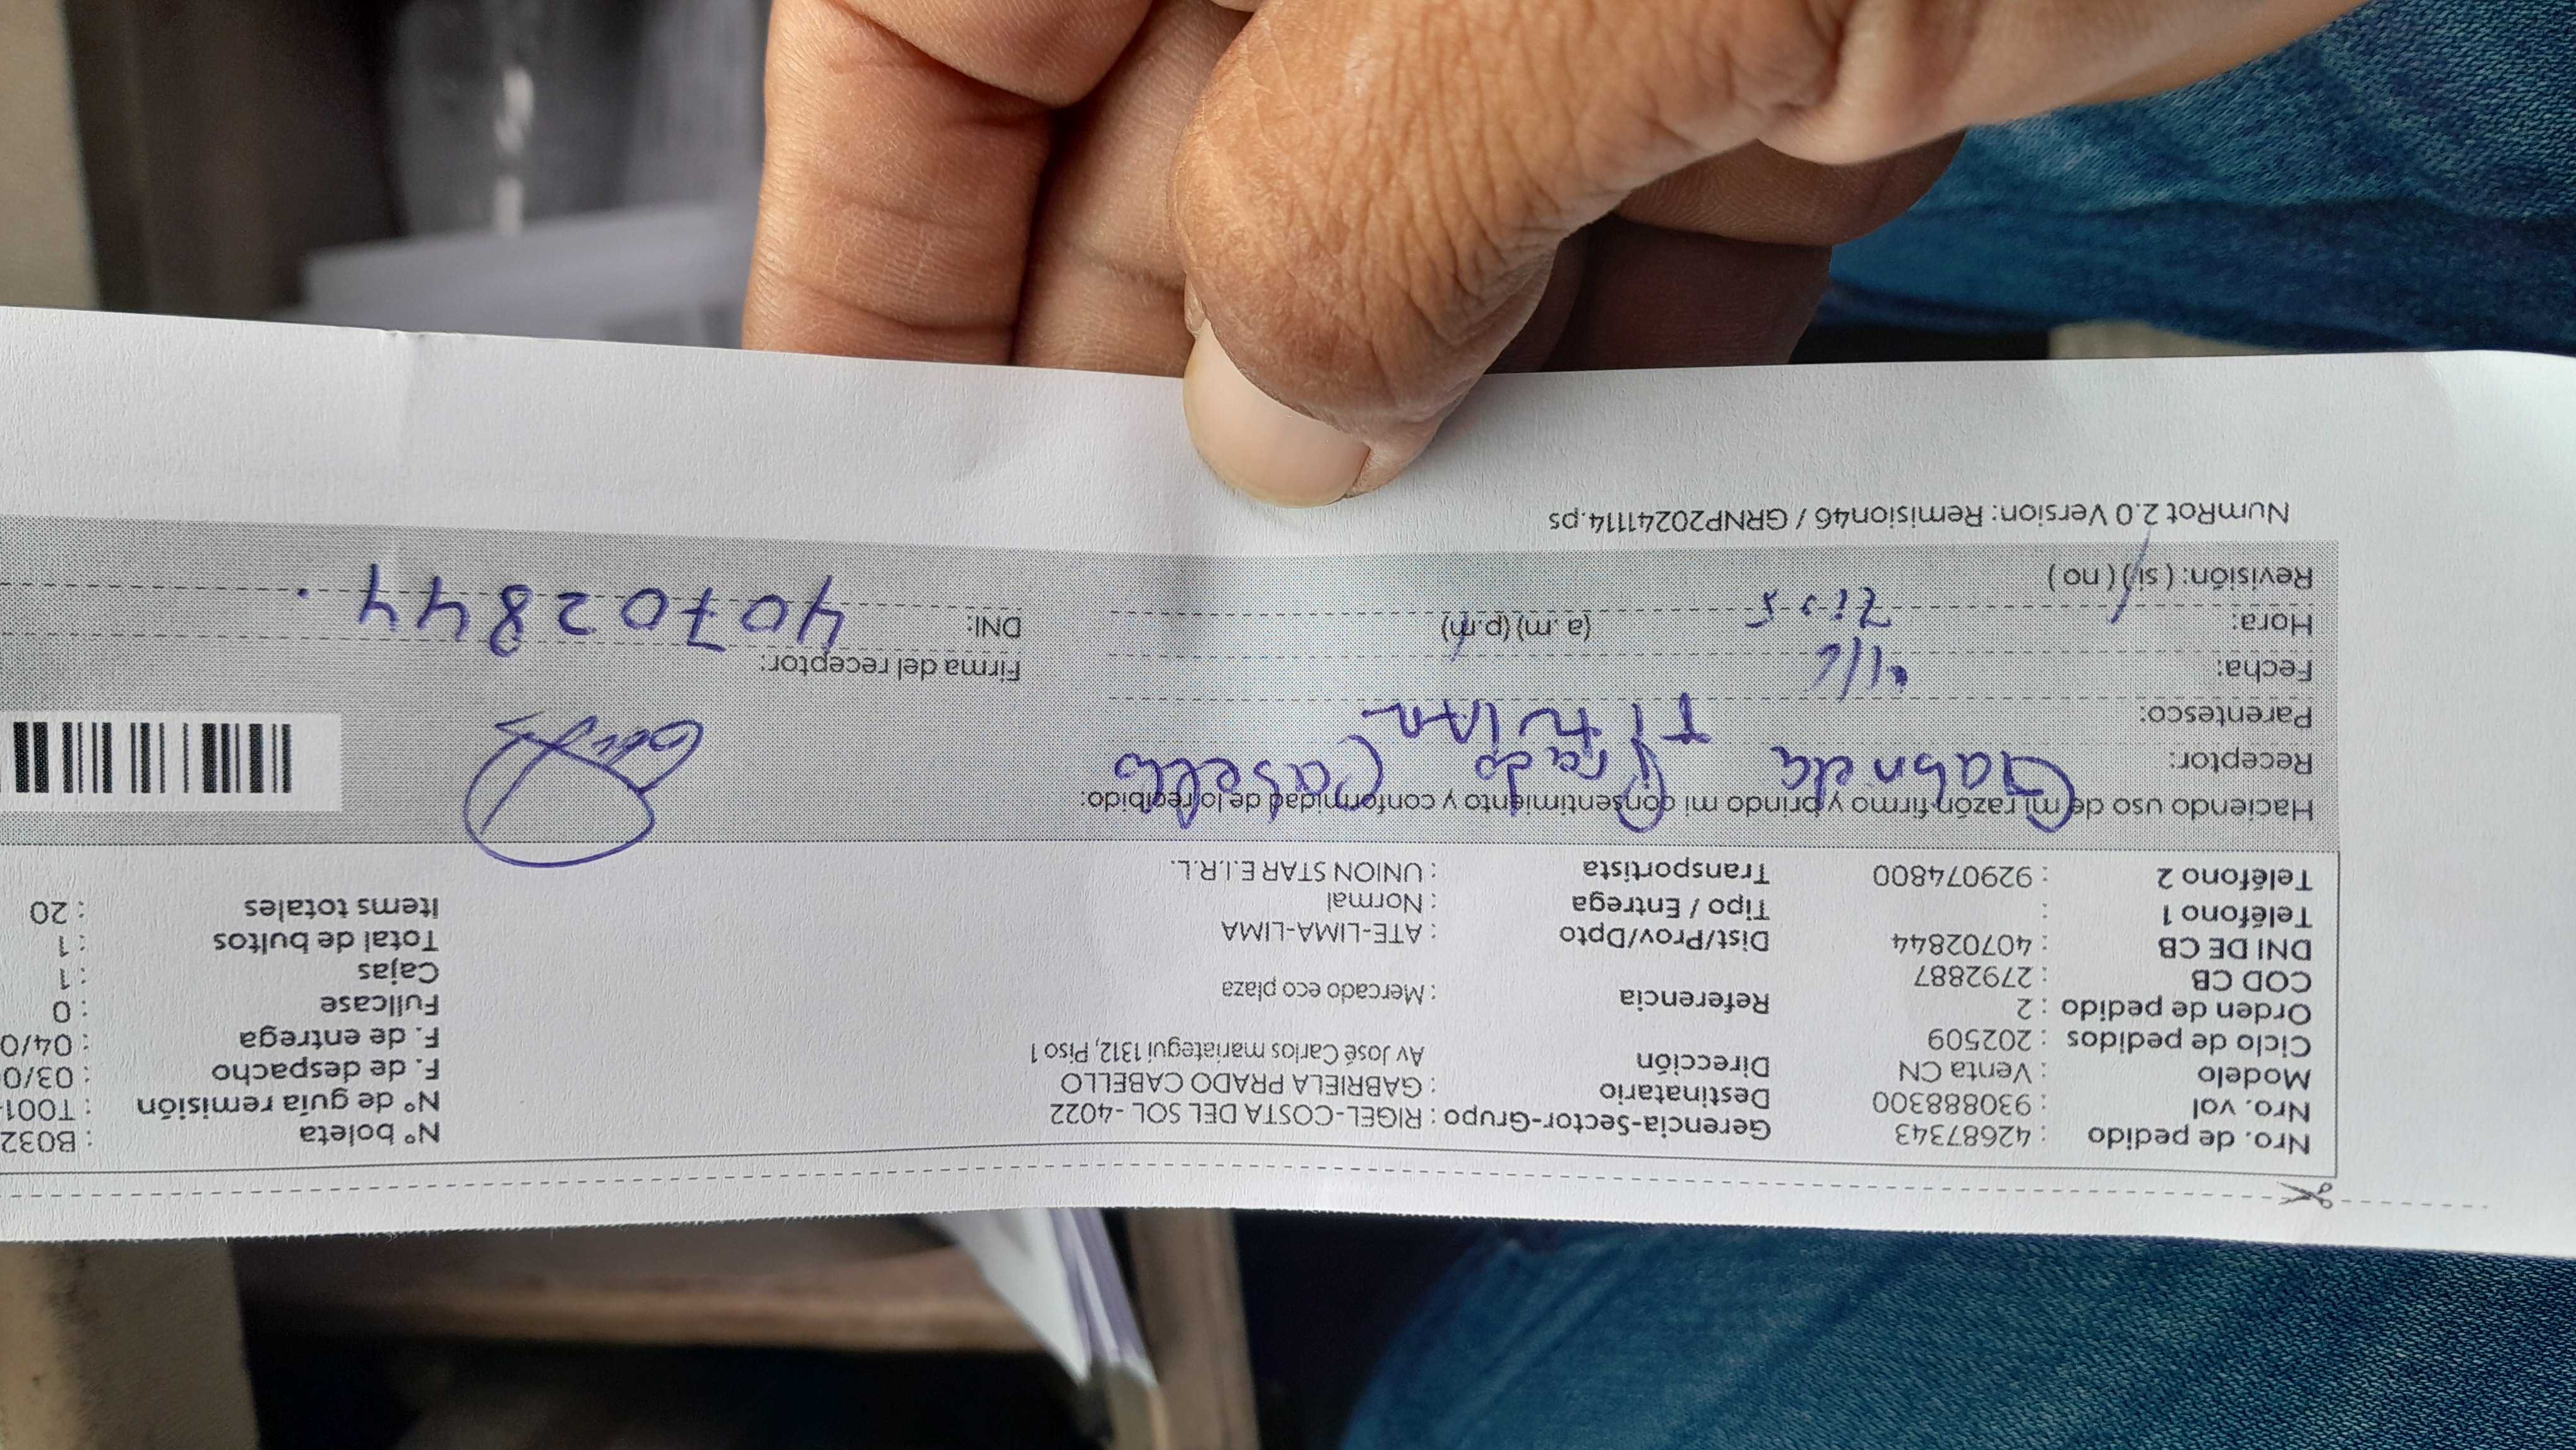 Nro. de pedido : 42687343 Gerencia-Sector-Grupo : RIGEL-COSTA DEL SOL - 4022 N° boleta : B032
Nro. vol : 930888300 Destinatario : GABRIELA PRADO CABELLO N° de guía remisión : T001-
Modelo : Venta CN Dirección Av José Carlos mariategui 1312, Piso 1 F. de despacho : 03/0
Ciclo de pedidos : 202509 F. de entrega : 04/0
Orden de pedido : 2 Referencia : Mercado eco plaza Fullcase : 0
COD CB : 2792887 Cajas : 1
DNI DE CB : 40702844 Dist/Prov/Dpto : ATE-LIMA-LIMA Total de bultos : 1
Teléfono 1 : Tipo / Entrega : Normal Items totales : 20
Teléfono 2 : 929074800 Transportista : UNION STAR E.I.R.L.
Haciendo uso de mi razón firmo y brindo mi consentimiento y conformidad de lo recibido:
Receptor: Gabriela Prado Cabello
Parentesco: Titular
Fecha: Firma del receptor:
Hora: (a.m) (p.m) DNI: 40702844.
Revisión: ( si ) ( no )
NumRot 2.0 Version: Remision46 / GRNP20241114.ps